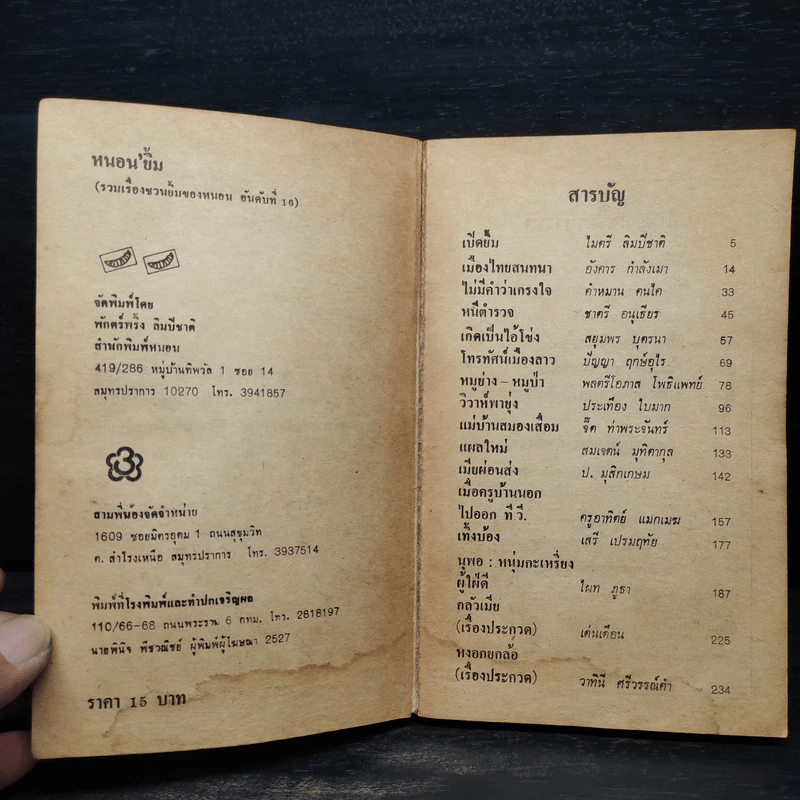 หนอน'ยิ้ม
(รวมเรื่องชวนยิ้มของหนอน อันดับที่ 16)
จัดพิมพ์โดย
พักตร์พริ้ง ลิมปิชาติ
สำนักพิมพ์หนอน
419/286 หมู่บ้านทิพวัล 1 ซอย 14
สมุทรปราการ 10270 โทร. 3941857
3
สามพี่น้องจัดจำหน่าย
1609 ซอยมิตรอุดม 1 ถนนสุขุมวิท
ต. สำโรงเหนือ สมุทรปราการ โทร. 3937514
พิมพ์ที่โรงพิมพ์และทำปกเจริญผล
110/66-68 ถนนพระราม 6 กทม. โทร. 2818197
นายพินิจ พืชวณิชย์ ผู้พิมพ์ผู้โฆษณา 2527
ราคา 15 บาท
สารบัญ
เปิดยิ้ม ไมตรี ลิมปิชาติ 5
เมืองไทยสนทนา อังคาร กำลังเมา 14
ไม่มีคำว่าเกรงใจ คำหมาน คนไค 33
หนีตำรวจ ชาตรี อนุเธียร 45
เกิดเป็นไอ้โข่ง สยุมพร บุตรนา 57
โทรทัศน์เมืองลาว ปัญญา ฤกษ์อุไร 69
หมูย่าง – หมูป่า พลตรีโอภาส โพธิแพทย์ 78
วิวาห์พายุ่ง ประเทือง ใบมาก 96
แม่บ้านสมองเสื่อม จี๊ด ท่าพระจันทร์ 113
แผลใหม่ สมเจตน์ มุทิตากุล 133
เมียผ่อนส่ง ป. มุสิกเกษม 142
เมื่อครูบ้านนอก
ไปออก ที.วี. ครูอาทิตย์ แมกเมฆ 157
เท้งบ้อง เสรี เปรมฤทัย 177
นุพอ : หนุ่มกะเหรี่ยง
ผู้ใฝ่ดี ไผท ภูธา 187
กลัวเมีย
(เรื่องประกวด) เด่นเดือน 225
หงอกยกล้อ
(เรื่องประกวด) วาทินี ศรีวรรณ์คำ 234